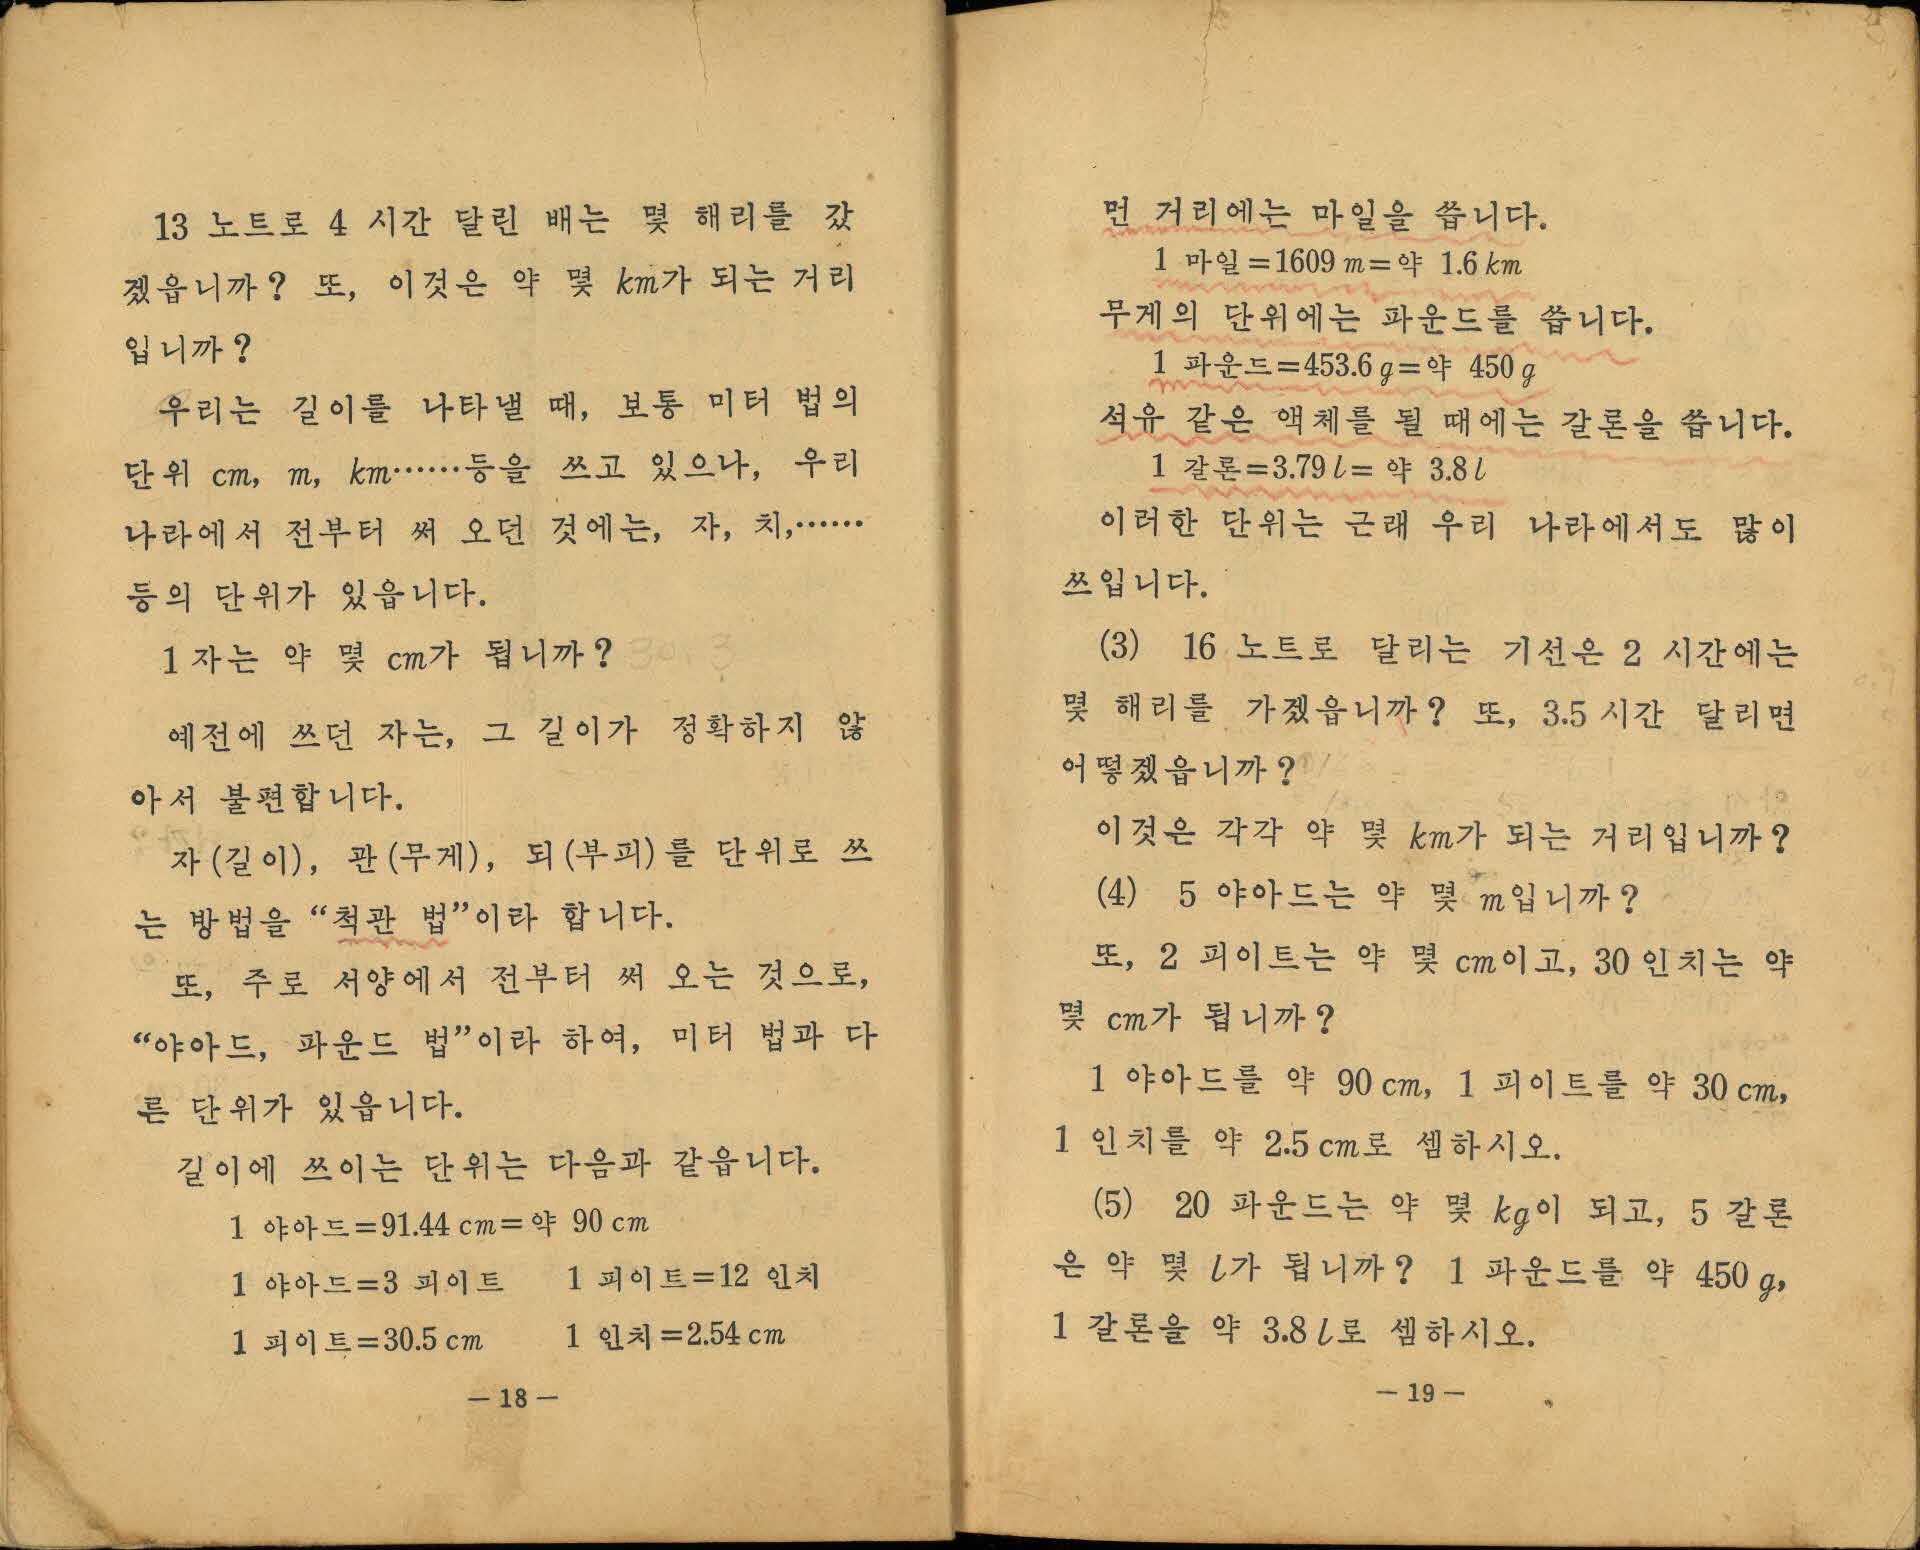 13 노트로 4 시간 달린 배는 몇 해리를 갔
겠읍니까? 또, 이것은 약 몇 km가 되는 거리
입니까?
우리는 길이를 나타낼 때, 보통 미터 법의
단위 cm, m, km……등을 쓰고 있으나, 우리
나라에서 전부터 써 오던 것에는, 자, 치,……
등의 단위가 있읍니다.
1 자는 약 몇 cm가 됩니까?
예전에 쓰던 자는, 그 길이가 정확하지 않
아서 불편합니다.
자(길이), 관(무게), 되(부피)를 단위로 쓰
는 방법을 “척관 법”이라 합니다.
또, 주로 서양에서 전부터 써 오는 것으로,
“야아드, 파운드 법”이라 하여, 미터 법과 다
른 단위가 있읍니다.
길이에 쓰이는 단위는 다음과 같읍니다.
1 야아드=91.44 cm=약 90 cm
1 야아드=3 피이트 1 피이트=12 인치
1 피이트=30.5 cm 1 인치=2.54 cm
— 18 —
먼 거리에는 마일을 씁니다.
1 마일=1609 m=약 1.6 km
무게의 단위에는 파운드를 씁니다.
1 파운드=453.6 g=약 450 g
석유 같은 액체를 될 때에는 갈론을 씁니다.
1 갈론=3.79 l= 약 3.8 l
이러한 단위는 근래 우리 나라에서도 많이
쓰입니다.
(3) 16 노트로 달리는 기선은 2 시간에는
몇 해리를 가겠읍니까? 또, 3.5 시간 달리면
어떻겠읍니까?
이것은 각각 약 몇 km가 되는 거리입니까?
(4) 5 야아드는 약 몇 m입니까?
또, 2 피이트는 약 몇 cm이고, 30 인치는 약
몇 cm가 됩니까?
1 야아드를 약 90 cm, 1 피이트를 약 30 cm,
1 인치를 약 2.5 cm로 셈하시오.
(5) 20 파운드는 약 몇 kg이 되고, 5 갈론
은 약 몇 l가 됩니까? 1 파운드를 약 450 g,
1 갈론을 약 3.8 l로 셈하시오.
— 19 —